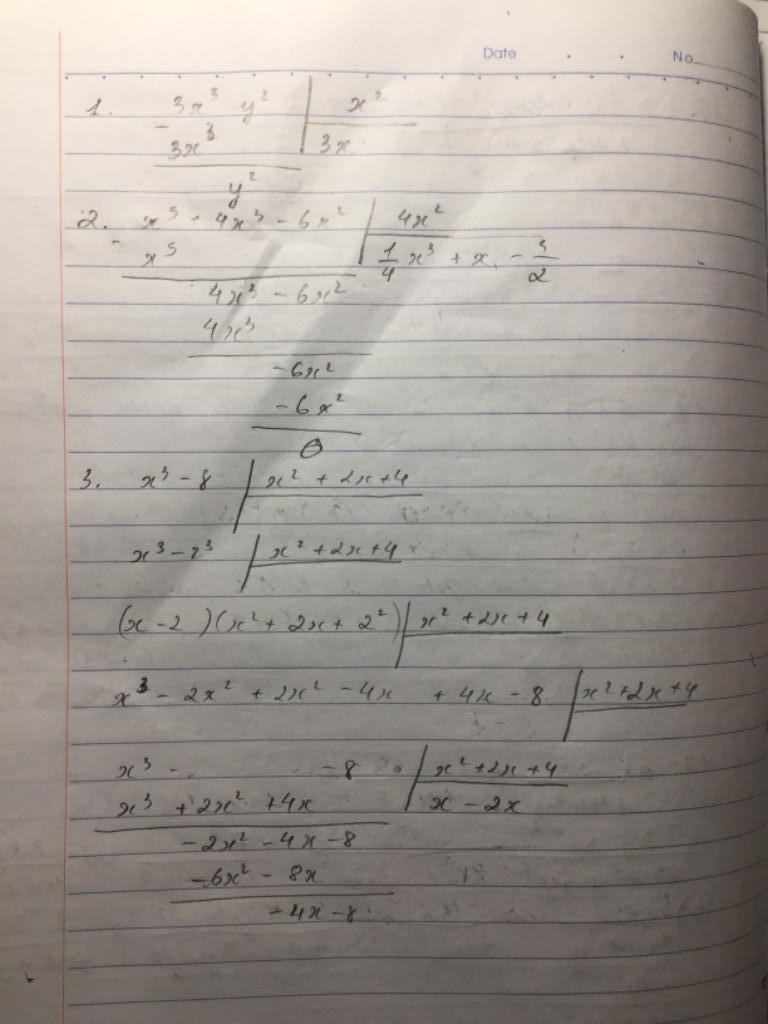 Date . . No.
1. 3x³ y² | x²
- 3x³ | 3x
y²
2. x⁵ + 4x³ - 6x² | 4x²
- x⁵ | 1/4 x³ + x - 3/2
4x³ - 6x²
4x³
-6x²
-6x²
0
3. x³ - 8 | x² + 2x + 4
x³ - 2³ | x² + 2x + 4
(x - 2)(x² + 2x + 2²) | x² + 2x + 4
x³ - 2x² + 2x² - 4x + 4x - 8 | x² + 2x + 4
x³ - -8 | x² + 2x + 4
x³ + 2x² + 4x | x - 2x
-2x² - 4x - 8
-6x² - 8x
-4x - 8